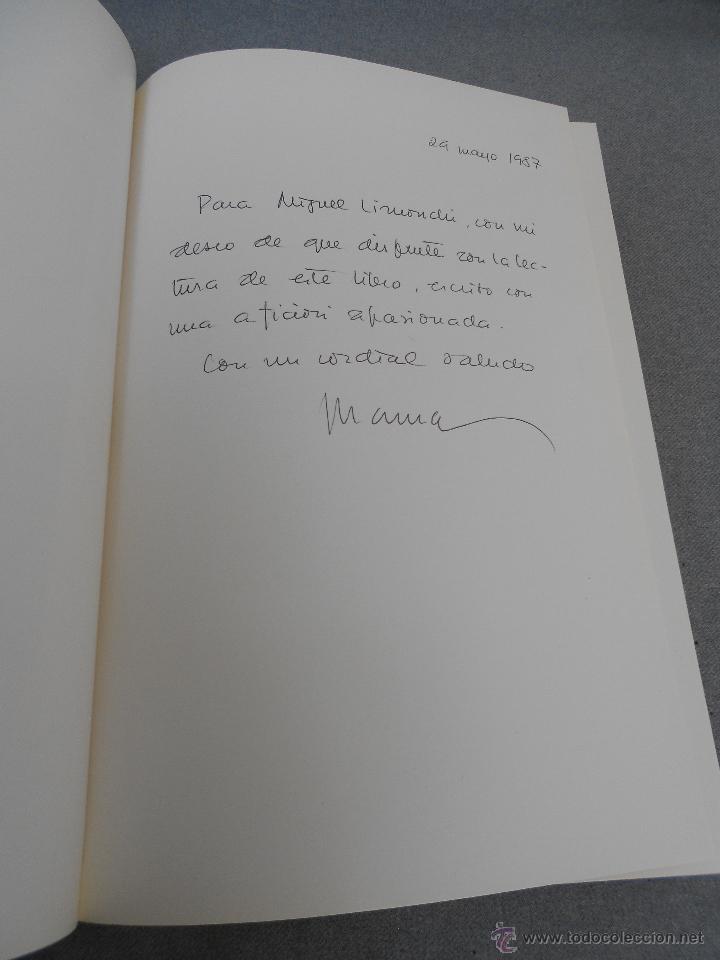 29 mayo 1987
Para Miguel Limondú, con mi
deseo de que disfrute con la lec-
tura de este libro, escrito con
una afición apasionada.
Con un cordial saludo
© www.todocoleccion.net